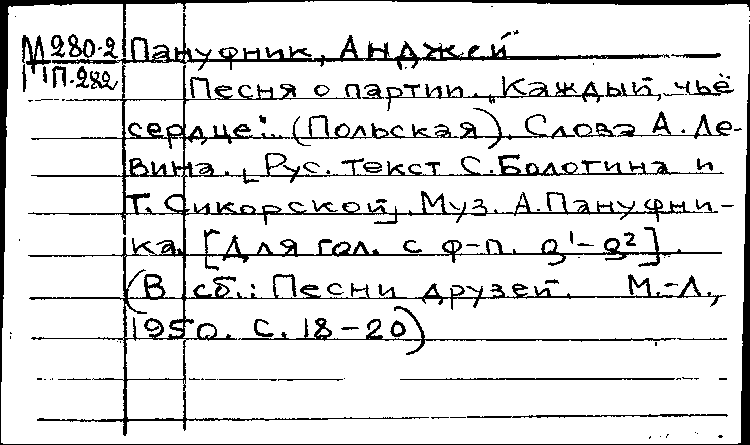 М280-2 Пануфник, Анджей
П-282
Песня о партии. „Каждый, чьё
сердце". (Польская). Слова А. Ле-
вина. [Рус. текст С. Болотина и
Т. Сикорской]. Муз. А. Пануфни-
ка. [Для гол. с ф-п. g¹-g²].
(В сб.: Песни друзей. М.-Л.,
1950. С. 18-20)